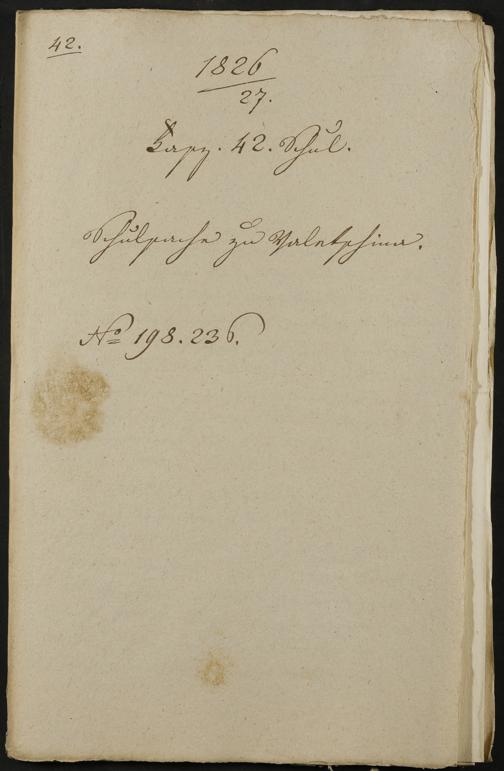 42.
1826
27.
Kapz. 42. Schul.
Schulsache zu Valetschina.
No 198. 236.